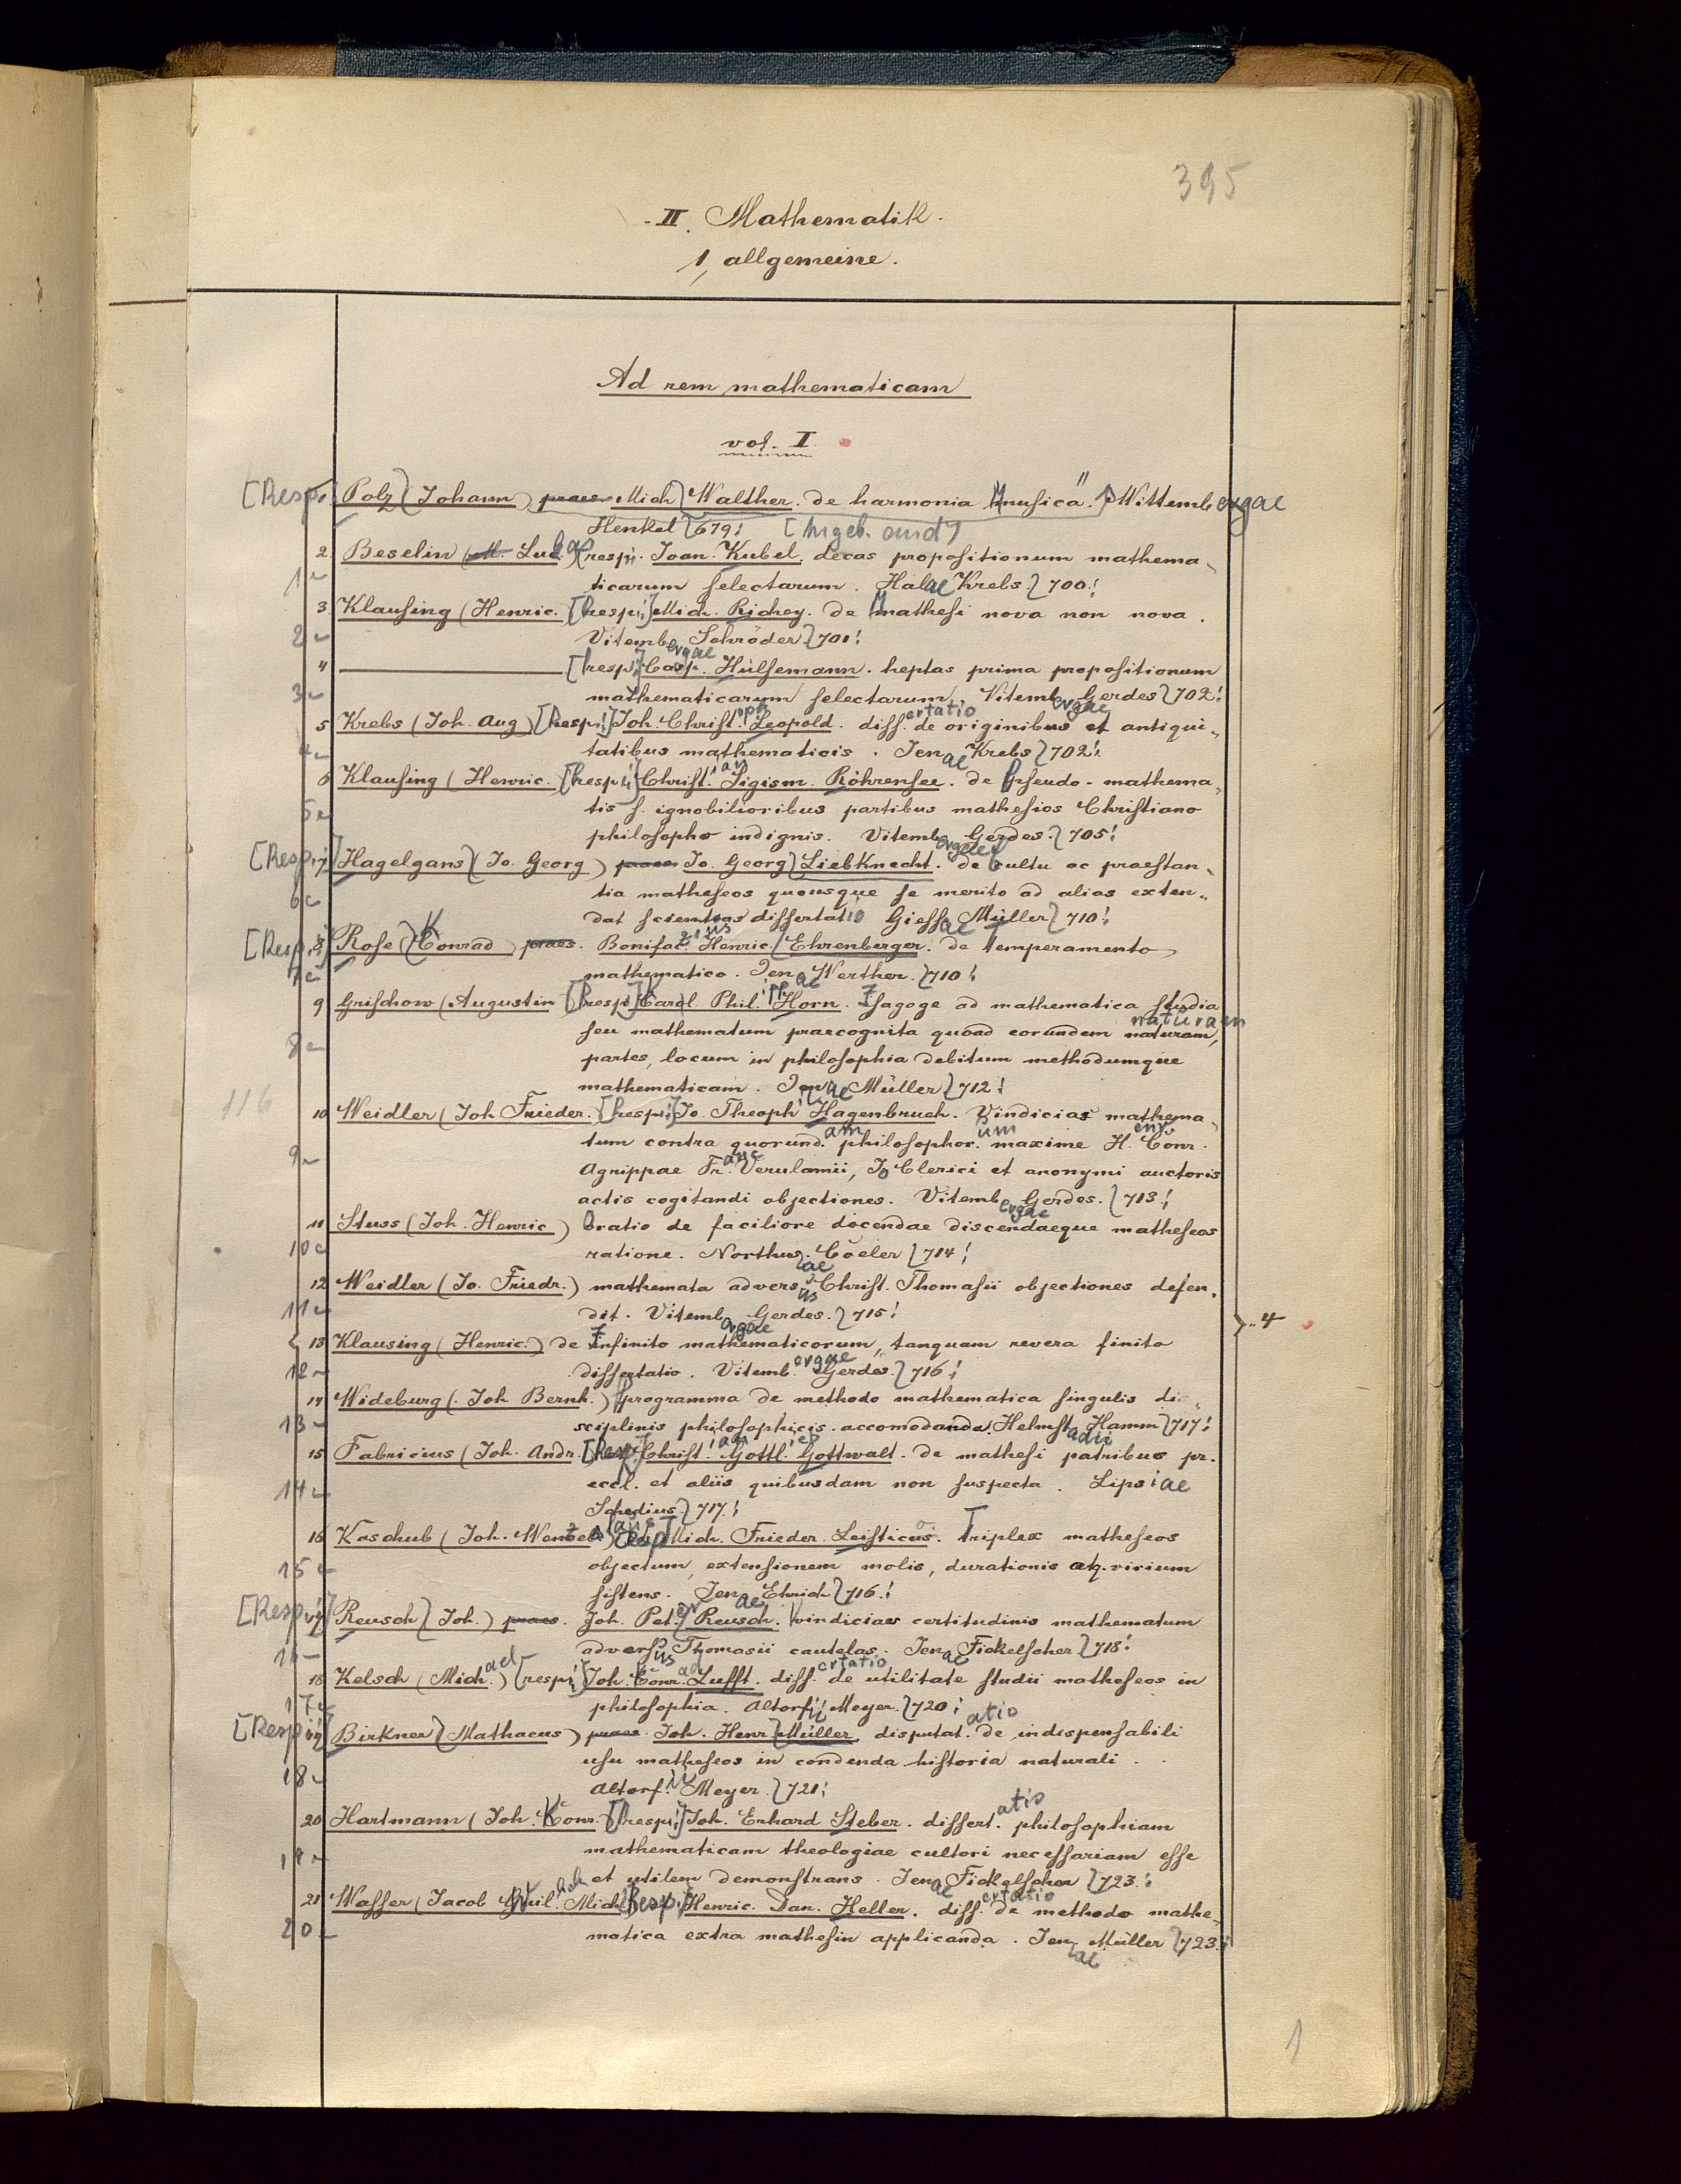 395
II. Mathematik.
1, allgemeine.
Ad rem mathematicam
vol. I.
[Resp.] Polz (Johann) praes. Mich. Walther. de harmonia musica. Wittembergae
Henkel 679. [
2 Beselin (M. Lud.) resp. Joan. Kubel. decas propositionum mathema-
1 ticarum selectarum. Halae Krebs 700.
3 Klausing (Henric. [resp.] Mich. Richey. De Mathesi nova non nova.
2 Vitembergae Schröder 701.
4 [resp.] Casp. Hülsemann. heptas prima propositionum
3 mathematicarum selectarum. Vitembergae Gerdes 702.
5 Krebs (Joh. Aug) [resp.] Joh. Christoph Leopold. dissertatio de originibus et antiqui-
4 tatibus mathematicis. Jenae Krebs 702.
6 Klausing (Henric. [resp.] Christian Sigism. Röhrensee. de Pseudo-mathema-
5 tis s. ignobilioribus partibus matheseos Christiano
philosopho indignis. Vitembergae Gerdes. 705.
[Resp.] 7 Hagelgans (Jo. Georg) praes. Jo. Georg Liebknecht. de cultu ac praestan-
6 tia matheseos quousque se merito ad alias exten-
dat scientias dissertatio Giessae Müller 710.
[Resp.] 8 Rose (Konrad) praes. Bonifacius Henric. Ehrenberger. de temperamento
7 mathematico. Jenae Werther. 710.
9 Grischow (Augustin [resp.] Karl. Philipp Horn. Isagoge ad mathematica studia
seu mathematum praecognita quoad eorundem naturam,
8 partes, locum in philosophia debitum methodumque
mathematicam. Jenae Müller 712.
116
10 Weidler (Joh Frieder. [resp.] Jo. Theoph Hagenbruch. Vindicias mathema-
tum contra quorundam philosophorum maxime H. Corn.
9 Agrippae Franc. Verulamii, Jo Clerici et anonymi auctoris
actis cogitandi objectiones. Vitembergae Gerdes. 713.
11 Stuss (Joh. Henric) Oratio de faciliore docendae discendaeque matheseos
10 ratione. Northusae Cöeler 714.
12 Weidler (Jo. Friedr.) mathemata adversus Christ. Thomasii objectiones defen-
11 dit. Vitembergae Gerdes. 715.
4
13 Klausing (Henric.) de Infinito mathematicorum, tanquam revera finito
12 dissertatio. Vitembergae Gerdes. 716.
14 Wideburg (Joh Bernh.) Programma de methodo mathematica singulis di-
13 sciplinis philosophicis accomodanda. Helmstadii Hamm 717.
15 Fabricius (Joh. Andr. [Resp.] Christian Gottl. Gottwalt. de mathesi patribus pr.
14 eccl. et aliis quibusdam non suspecta. Lipsiae
Schedius. 717.
16 Kaschub (Joh. Wenzel) Mich. Frieder. Leisticus. Triplex matheseos
15 objectum, extensionem molis, durationis atq. virium
sistens. Jenae Ehrich 716.
[Resp.] 17 Reusch (Joh.) praes. Joh. Peter Reusch. Vindiciae certitudinis mathematum
16 adversus Thomasii cautelas. Jenae Fickelscher 718.
18 Kelsch (Mich.) [resp.] Joh. Conr. Lufft. dissertatio de utilitate studii matheseos in
17 philosophia. Altorfii Meyer. 720.
[Resp.] 19 Birkner (Mathaeus) praes. Joh. Henr Müller disputatio de indispensabili
18 usu matheseos in condenda historia naturali.
Altorfii Meyer. 721.
20 Hartmann (Joh. Konr. [resp.] Joh. Erhard Steber. dissert. philosophiam
19 mathematicam theologiae cultori necessariam esse
et utilem demonstrans. Jenae Fickelscher 723.
21 Wasser (Jacob Mich. [resp.] Henric. Dan. Heller. dissertatio de methodo mathe-
20 matica extra mathesin applicanda. Jenae Müller 723.
1